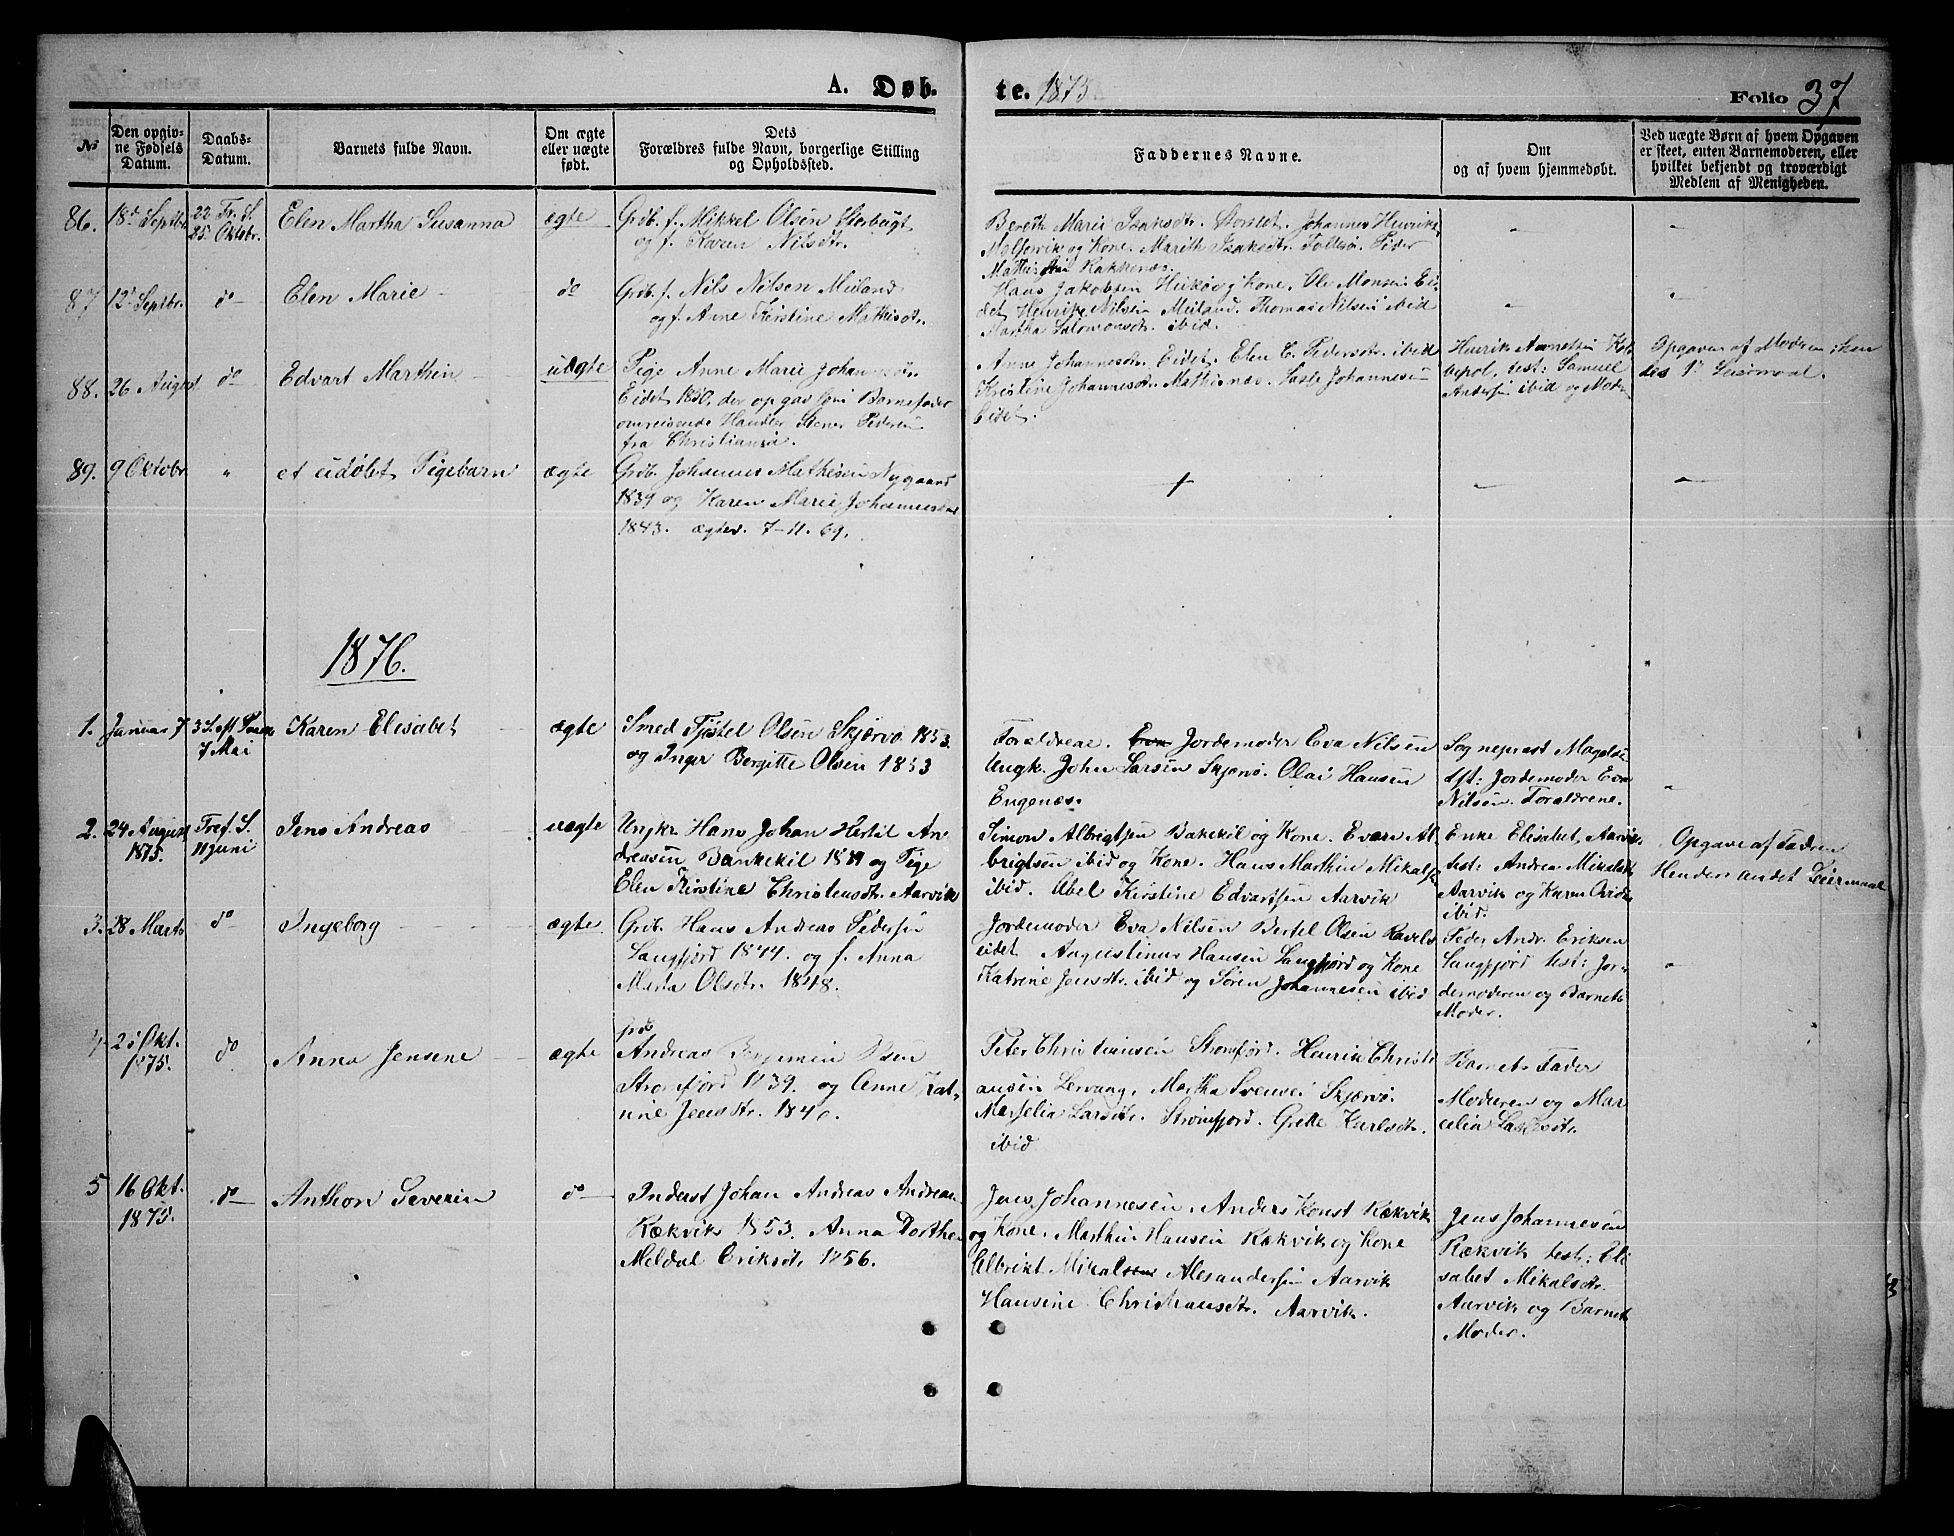 A. Døb.
te. 1875
Folio 37
No
Den opgiv-
ne Fødsels
Datum.
Daabs-
Datum.
Barnets fulde Navn.
Om ægte
eller uægte
født.
Dets
Forældres fulde Navn, borgerlige Stilling
og Opholdssted.
Faddernes Navne.
Om
og af hvem hjemmedøbt.
Ved uægte Børn af hvem Opgaven
er skeet, enten Barnemoderen, eller
hvilket bekjendt og troværdigt
Medlem af Menigheden.
86.
18d Septbr.
22 Tr. S.
25. Oktobr.
Elen Martha Susanna
ægte
Grdb. f. Mikkel Olsen
og f. Karen Nilsdtr.
Bereth Marie Isaksdtr. Storslet. Johannes Henriks
og Kone. Marith Isaksdtr. Peder
Mathis Rakkenæs.
87
12d Septbr.
do
Elen Marie
do
Grdb. f. Nils Nilsen Meiland
og f. Anne Kirstine Mathisdtr.
Hans Jakobsen Hukøy Kone. Ole Monsen Ei-
det, Henrik Nilsen Meiland. Thomas Nilsen ibid
Martha Salomonsdtr. ibid.
88.
26 August
do
Edvart Marthin
uægte
Pige Anne Marie
Eidet 1850, der opgav som Barnefader
omreisende Handler Pedersen
fra Christiania.
Anne Johannesdtr. Eidet. Elen C. Pedersdtr. ibid
Kristine Johannesdtr. Mathisnæs. Johannesen
Eidet.
Henrik Arnetsen
test: Samuel
Andersen ibid og Moder
Opgaven af Modren,
des 1ste Leiermaal.
89.
9 Oktobr
"
et udøbt Pigebarn
ægte
Grdb. Johannes Mathisen Nygaard
1839 og Karen Marie Johannesdtr
1843. ægtev. 7-11. 69.
1876.
1.
Januar 7
7 Mai
Karen Elisabet
ægte
Smed Tjøstel Olsen Skjærvø 1853.
og Inger Bergitte Olsen 1853
Forældrene. Eva Jordemoder Eva Nilsen
Ungk. John Larsen Skjærvø. Olai Hansen
Engenæs.
Sogneprest
tst: Jordemoder Eva
Nilsen. Forældrene.
2.
24 August
1875.
Tref. S.
11 Juni
Jens Andreas
uægte
Ungkr. Hans Johan Hertil An-
dreasen, Bankekil 1849 og Pige
Elen Kirstine Christensdtr. Aarvik
Simon Albrigtsen Bakekil og Kone. Evart Al-
brigtsen ibid og Kone. Hans Marthin Mikalsen
ibid. Abel Kirstine Edvartsen Aarvik
Enke Elisabet Aarvik
test: Andrea Mikalsdtr
Aarvik og Karen
ibid.
Opgave af Fadren
Hendes andet Leiermaal
3.
28 Marts
do
Ingeborg
ægte.
Grdb. Hans Andreas Pedersen
Langfjord 1844. og f. Anna
Marta Olsdtr. 1848.
Jordemoder Eva Nilsen Bertel Olsen Ravels-
eidet Augustinus Hansen Langfjord og Kone
Katrine Jensdtr. ibid og Søren Johannesen ibid
Peder Andr. Eriksen
Langfjord test: Jor-
demoderen og Barnets
Moder.
4
Okt.
1875.
do
Anna Jensene
ægte
Andreas Benjamin Olsen
Stromfjord 1839. og Anne Kat-
rine Jensdtr. 1840.
Peter Christiansen Stromfjord. Henrik Christi-
ansen Lervaag, Martha Svensen Skjærvø.
Marselia Larsdtr. Strømfjord. Grethe Karlsdtr.
ibid
Barnets Fader
Moderen og Mar
celia Larsdtr.
5
16 Okt.
1875.
do
Anthon Severin
do
Inderst Johan Andreas Andreas
Rækvik 1853. Anna Dorthea
Meldal Eriksdtr. 1856.
Jens Johannesen, Anders Konst Rækvik
og Kone. Marthin Hansen Rækvik og Kone
Albrikt Mikalsen Alexandersen Aarvik
Hansine Christiansdtr. Aarvik.
Jens Johannesen
Rækvik test: Eli
sabet Mikalsdtr.
Aarvik og Barnets
Moder.